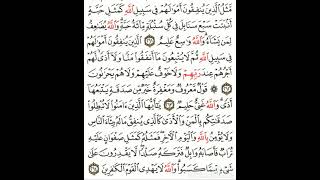 مَّثَلُ ٱلَّذِينَ يُنفِقُونَ أَمۡوَٰلَهُمۡ فِي سَبِيلِ ٱللَّهِ كَمَثَلِ حَبَّةٍ
أَنۢبَتَتۡ سَبۡعَ سَنَابِلَ فِي كُلِّ سُنۢبُلَةٖ مِّاْئَةُ حَبَّةٖۗ وَٱللَّهُ يُضَٰعِفُ
لِمَن يَشَآءُۚ وَٱللَّهُ وَٰسِعٌ عَلِيمٌ ٢٦١ ٱلَّذِينَ يُنفِقُونَ أَمۡوَٰلَهُمۡ
فِي سَبِيلِ ٱللَّهِ ثُمَّ لَا يُتۡبِعُونَ مَآ أَنفَقُواْ مَنّٗا وَلَآ أَذٗى لَّهُمۡ
أَجۡرُهُمۡ عِندَ رَبِّهِمۡ وَلَا خَوۡفٌ عَلَيۡهِمۡ وَلَا هُمۡ يَحۡزَنُونَ
٢٦٢ قَوۡلٞ مَّعۡرُوفٞ وَمَغۡفِرَةٌ خَيۡرٞ مِّن صَدَقَةٖ يَتۡبَعُهَآ
أَذٗىۗ وَٱللَّهُ غَنِيٌّ حَلِيمٞ ٢٦٣ يَٰٓأَيُّهَا ٱلَّذِينَ ءَامَنُواْ لَا تُبۡطِلُواْ
صَدَقَٰتِكُم بِٱلۡمَنِّ وَٱلۡأَذَىٰ كَٱلَّذِي يُنفِقُ مَالَهُۥ رِئَآءَ ٱلنَّاسِ
وَلَا يُؤۡمِنُ بِٱللَّهِ وَٱلۡيَوۡمِ ٱلۡأٓخِرِۖ فَمَثَلُهُۥ كَمَثَلِ صَفۡوَانٍ عَلَيۡهِ
تُرَابٞ فَأَصَابَهُۥ وَابِلٞ فَتَرَكَهُۥ صَلۡدٗاۖ لَّا يَقۡدِرُونَ عَلَىٰ
شَيۡءٖ مِّمَّا كَسَبُواْۗ وَٱللَّهُ لَا يَهۡدِي ٱلۡقَوۡمَ ٱلۡكَٰفِرِينَ ٢٦٤